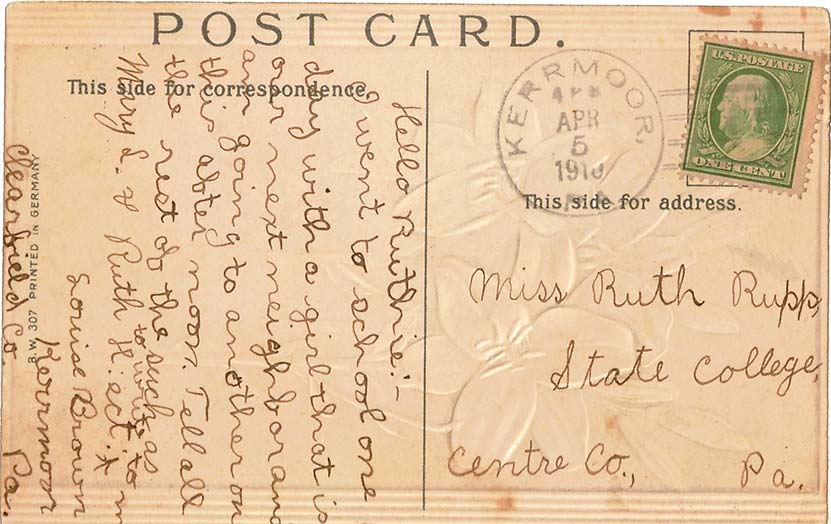 POST CARD.
This side for correspondence.
Hello Ruthie:-
I went to school one
day with a girl that is
our next neighbor and
am going to another on
this after noon. Tell all
the rest of the such as
Mary L. & Ruth H. ect. x
to write to m
Louise Brown
Kerrmoor
Clearfield Co. Pa.
B.W. 307 PRINTED IN GERMANY
KERRMOOR,
APR
5
1910
PA
U.S. POSTAGE
ONE CENT
This side for address.
Miss Ruth Rupp,
State College,
Centre Co., Pa.